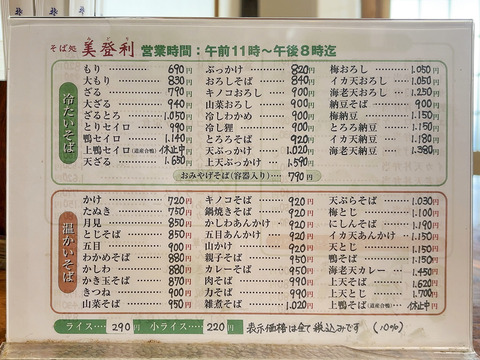 そば処 美登利 営業時間：午前11時〜午後8時迄
冷たいそば
もり…………… 690円
大もり………… 830円
ざる…………… 790円
大ざる………… 940円
ざるとろ……… 1.050円
とりセイロ…… 990円
鴨セイロ……… 1.140円
上鴨セイロ(道産合鴨) 休止中
天ざる………… 1.650円
ぶっかけ……… 820円
おろしそば…… 840円
キノコおろし… 900円
山菜おろし…… 900円
冷しわかめ…… 900円
冷し狸………… 900円
とろろそば…… 920円
天ぶっかけ…… 1.020円
上天ぶっかけ… 1.590円
梅おろし……… 1.050円
イカ天おろし… 1.050円
海老天おろし… 1.250円
納豆そば……… 900円
梅納豆………… 1.150円
とろろ納豆…… 1.150円
イカ天納豆…… 1.180円
海老天納豆…… 1.380円
おみやげそば(容器入り)…… 790円
温かいそば
かけ…………… 720円
たぬき………… 750円
月見…………… 850円
とじそば……… 850円
五目…………… 900円
わかめそば…… 880円
かしわ………… 880円
かき玉そば…… 870円
きつね………… 900円
山菜そば……… 950円
キノコそば…… 920円
鍋焼きそば…… 920円
かしわあんかけ… 920円
五目あんかけ… 920円
山かけ………… 920円
親子そば……… 950円
カレーそば…… 950円
肉そば………… 990円
力そば………… 990円
雑煮そば……… 1.020円
天ぷらそば…… 1.030円
梅とじ………… 1.100円
にしんそば…… 1.190円
イカ天あんかけ… 1.150円
天とじ………… 1.150円
鴨そば………… 1.150円
海老天カレー… 1.450円
上天そば……… 1.620円
上天とじ……… 1.700円
上鴨そば(道産合鴨) 休止中
ライス…… 290円 小ライス…… 220円 表示価格は全て税込みです (10%)